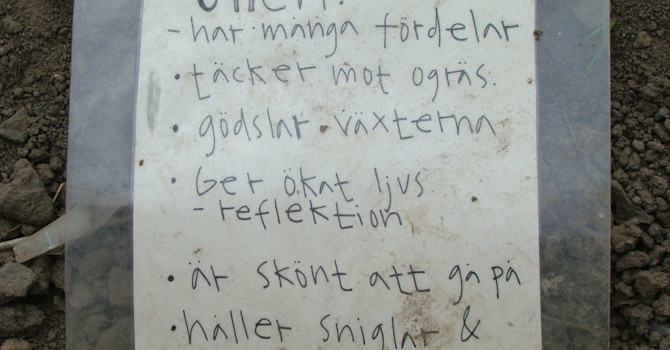 Ullen:
- har många fördelar
• täcker mot ogräs.
• gödslar växterna
• Ger ökat ljus
- reflektion
• är skönt att gå på
• håller sniglar &